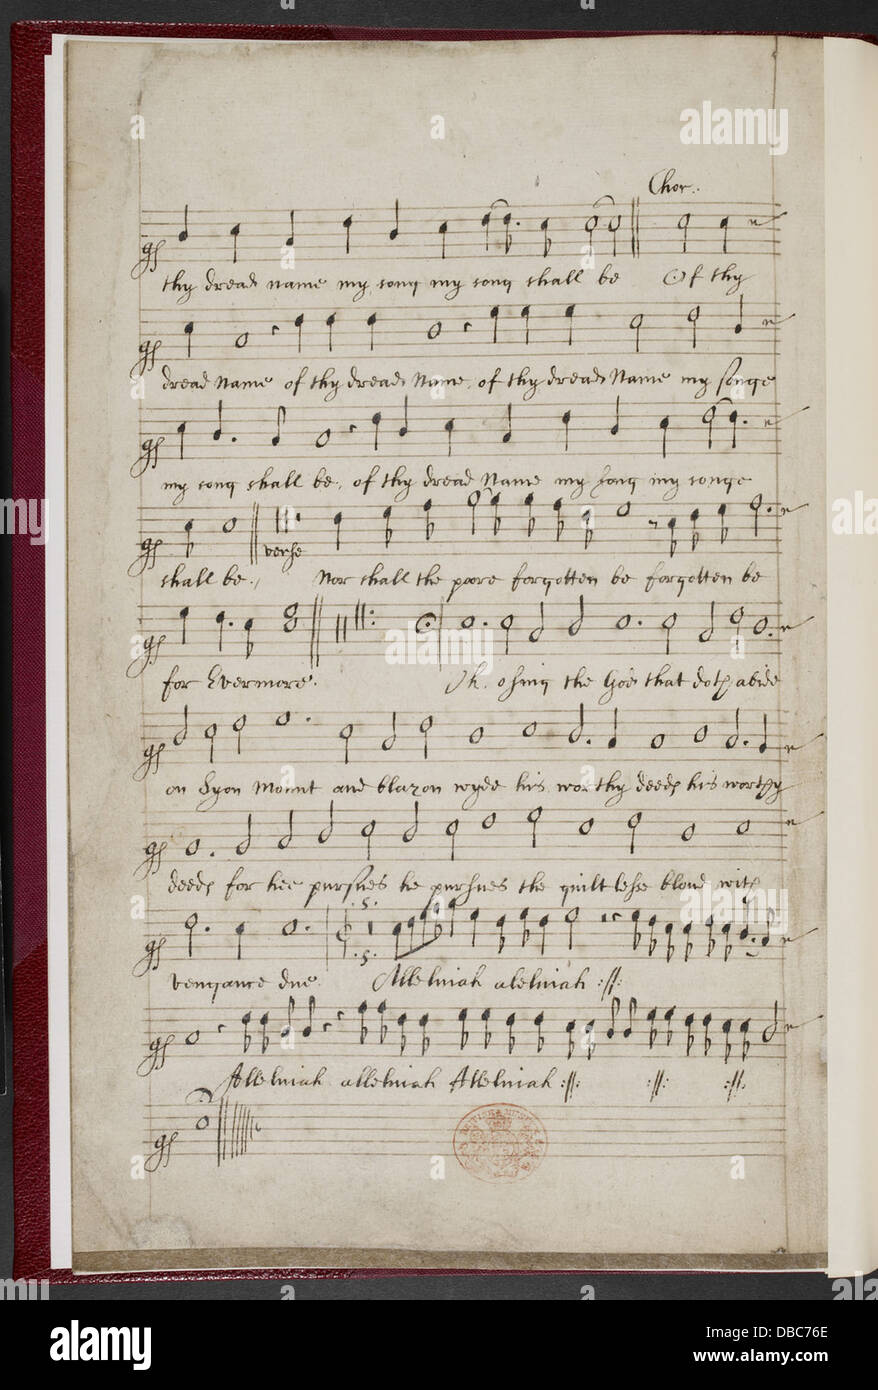 Chor.
thy dread name my song my song shall be Of thy
dread Name of thy dread Name, of thy dread Name my songe
my song shall be, of thy dread Name my song my songe
verse
shall be, Nor shall the poore forgotten be forgotten be
for Evermore. Oh, o sing the God that doth abide
on Syon Mount and blazon wyde his worthy deeds his worthy
deeds for hee pursues he pursues the guiltlesse bloud with
.5.
.5.
vengance due. Alleluiah aleluiah :||:
Alleluiah alleluiah Alleluiah :||: :||: :||:
BRITISH MUSEUM
a alamy
alamy
DBC76E
www.alamy.com